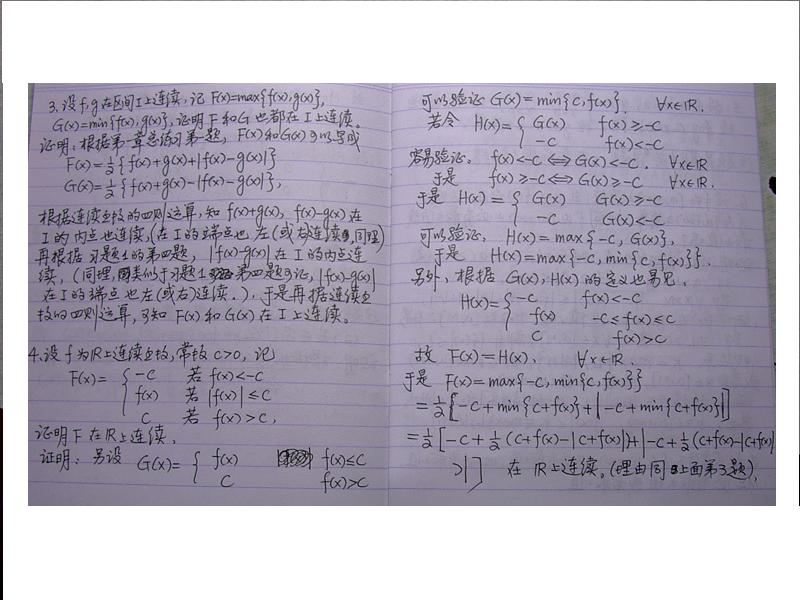 3.设f,g在区间I上连续,记F(x)=max{f(x),g(x)},
G(x)=min{f(x),g(x)},证明F和G也都在I上连续。
证明:根据第一章总练习第一题,F(x)和G(x)可以写成
F(x)=½{f(x)+g(x)+|f(x)-g(x)|}
G(x)=½{f(x)+g(x)-|f(x)-g(x)|},
根据连续函数的四则运算,知f(x)+g(x),f(x)-g(x)在
I的内点也连续,(在I的端点也左(或右)连续,同理)
再根据习题1的第四题,|f(x)-g(x)|在I的内点连
续,(同理,类似于习题1第四题可证,|f(x)-g(x)|
在I的端点也左(或右)连续。),于是再据连续函
数的四则运算,可知F(x)和G(x)在I上连续。
4.设f为ℝ上连续函数,常数c>0,记
F(x)= { -c 若 f(x)<-c
f(x) 若 |f(x)|≤c
c 若 f(x)>c,
证明F在ℝ上连续,
证明:另设 G(x)= { f(x) f(x)≤c
c f(x)>c
可以验证G(x)=min{c,f(x)}. ∀x∈ℝ.
若令 H(x)= { G(x) f(x)≥-c
-c f(x)<-c
容易验证,f(x)<-c⟺G(x)<-c. ∀x∈ℝ
于是 f(x)≥-c⟺G(x)≥-c ∀x∈ℝ.
于是 H(x)= { G(x) G(x)≥-c
-c G(x)<-c
可以验证,H(x)=max{-c,G(x)},
于是 H(x)=max{-c,min{c,f(x)}}.
另外,根据G(x),H(x)的定义也易见,
H(x)= { -c f(x)<-c
f(x) -c≤f(x)≤c
c f(x)>c
故 F(x)=H(x), ∀x∈ℝ.
于是 F(x)=max{-c,min{c,f(x)}}
=½[-c+min{c+f(x)}+|-c+min{c+f(x)}|]
=½[-c+½(c+f(x)-|c+f(x)|)+|-c+½(c+f(x)-|c+f(x)|
)|] 在ℝ上连续。(理由同上面第3题),